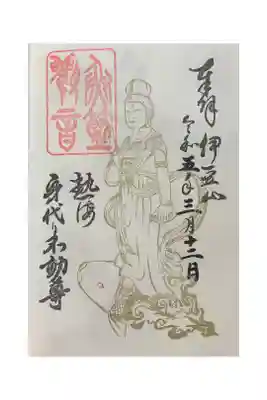 奉拝 伊豆山
令和五年三月十二日
觀音
熱海
身代り不動尊